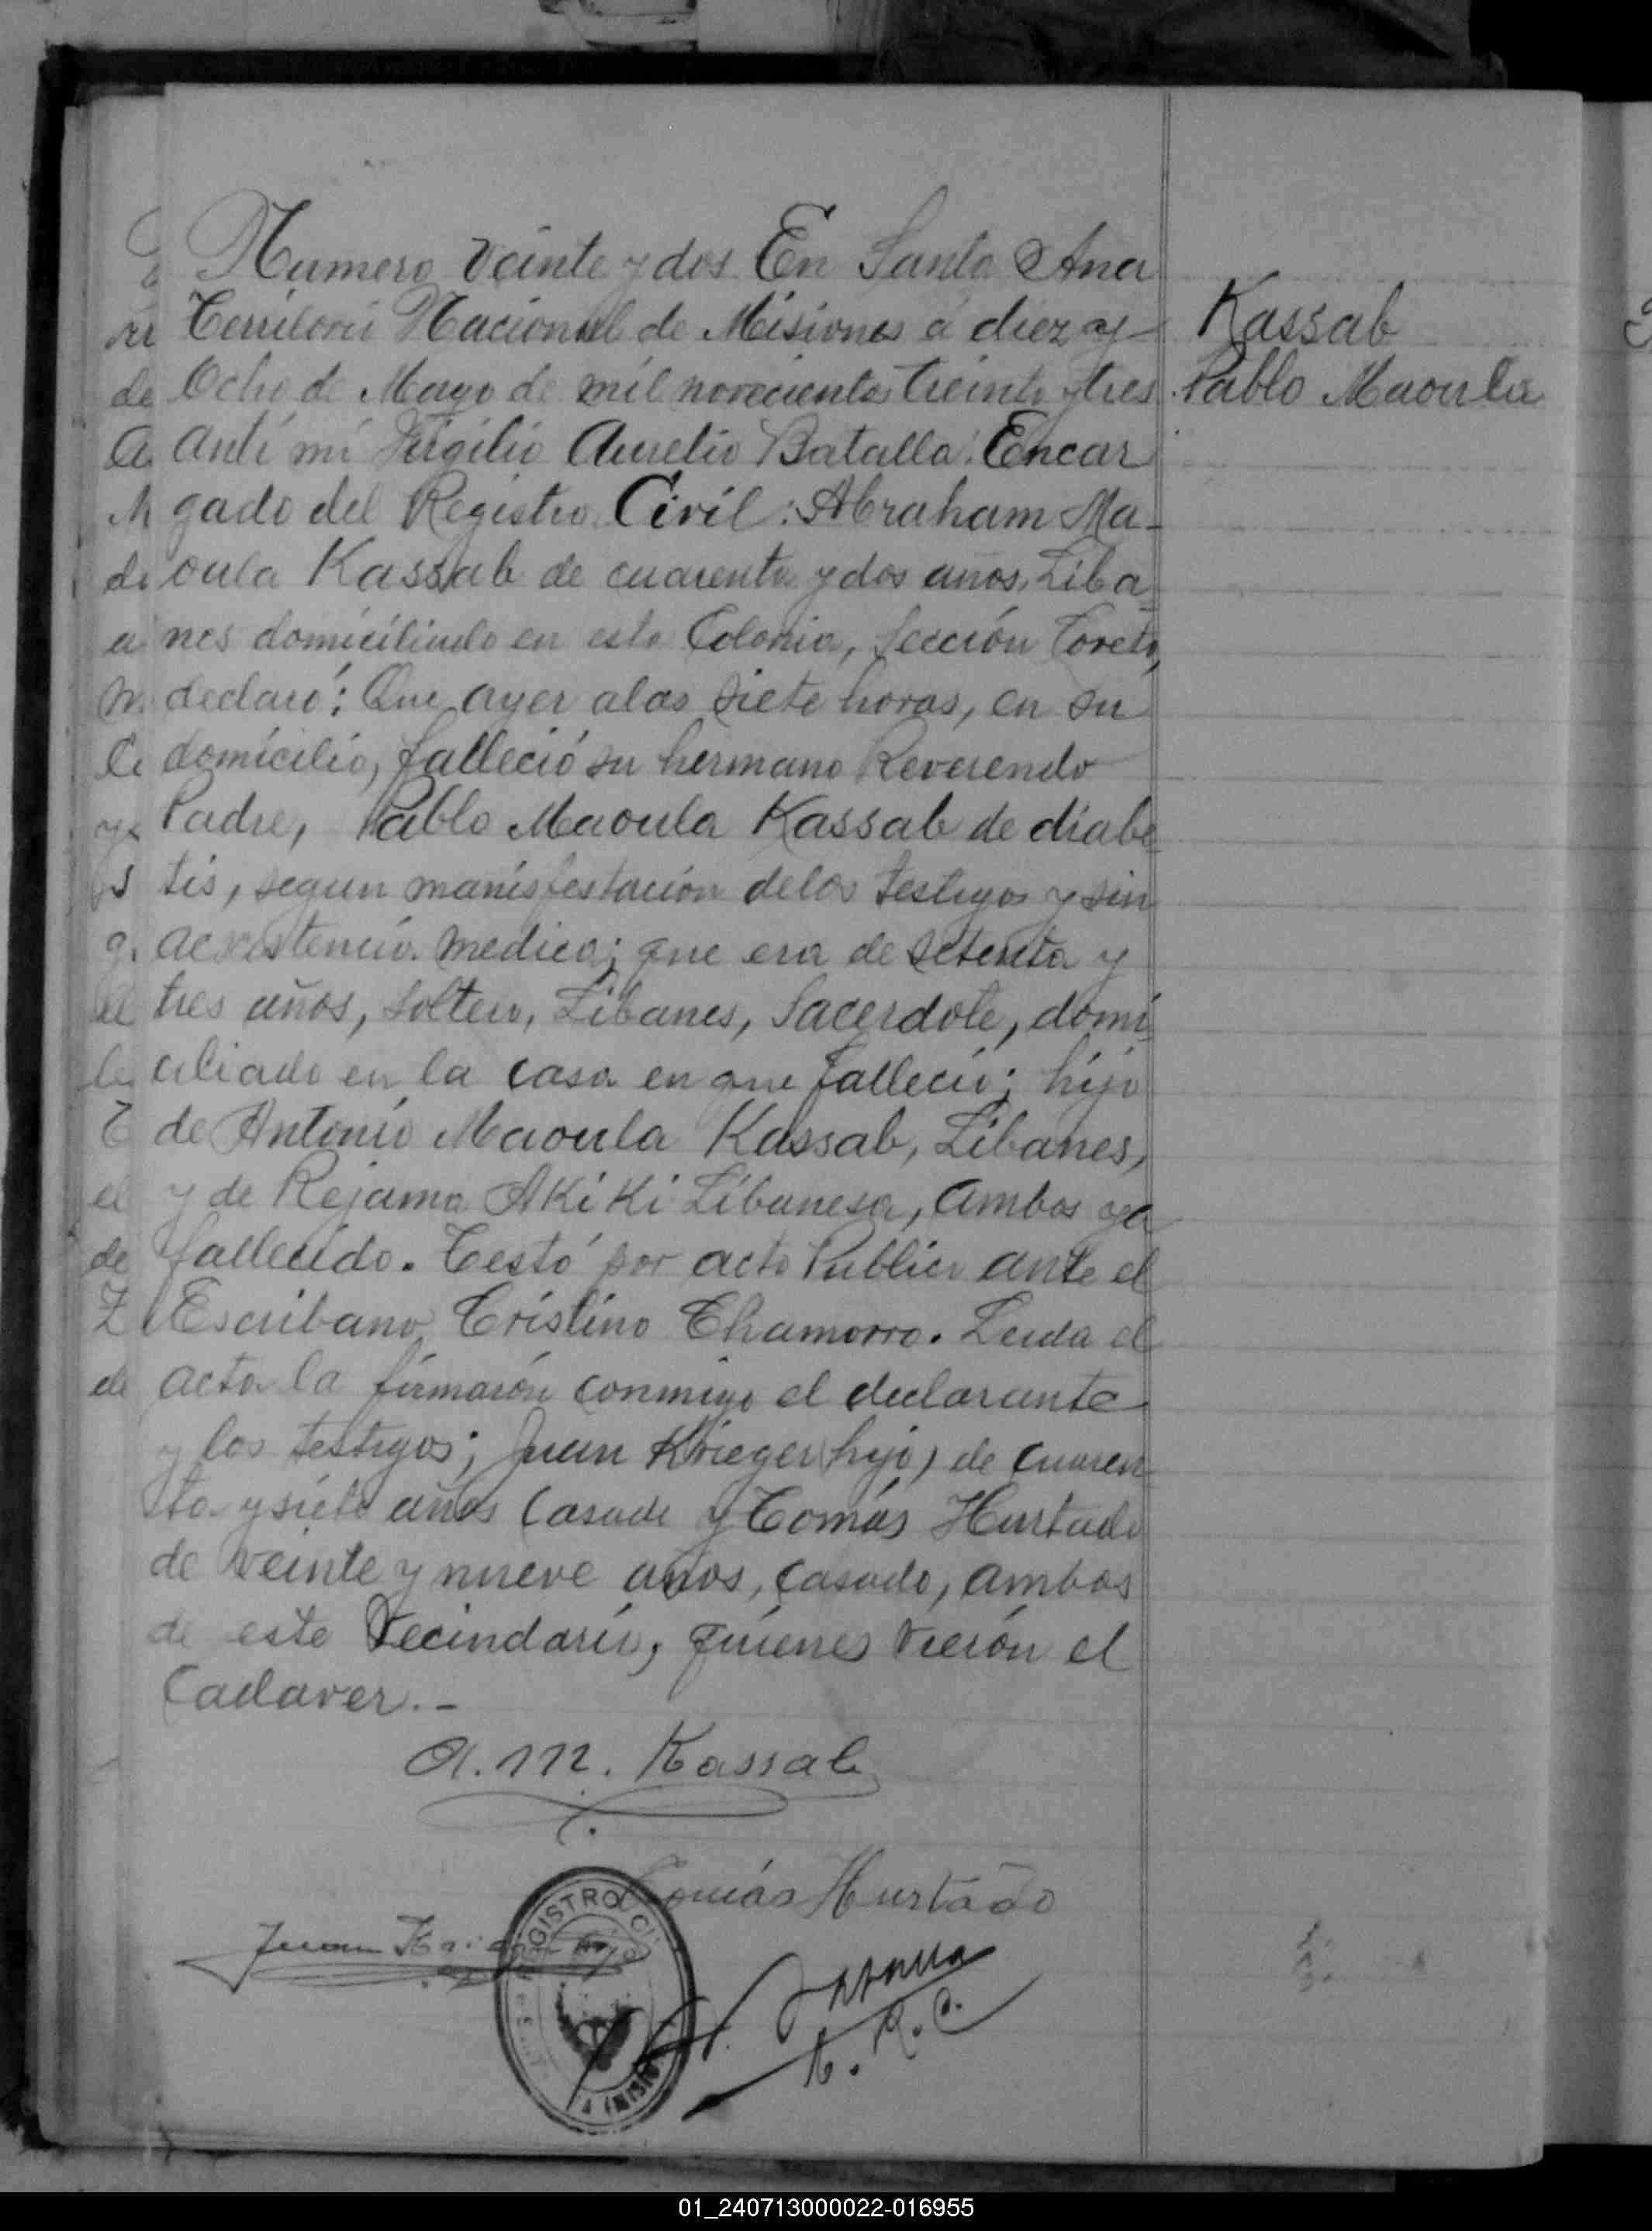 Numero veinte y dos En Santa Ana
Territorio Nacional de Misiones á diez y
Kassab
Pablo Maoula
Ocho de Mayo de mil novecientos treinta y tres
Anti mi Virgilio Aurelio Batalla Encar
gado del Registro Civil: Abraham Ma-
oula Kassab de cuarenta y dos años, Liba
nes domiciliado en esta Colonia, Sección Loreto,
declaró: Que ayer a las siete horas, en su
domicilio, falleció su hermano Reverendo
Padre, Pablo Maoula Kassab de diabe
tis, segun manisfestación de los testigos y sin
acxistencia medica; que era de setenta y
tres años, soltero, Libanes, Sacerdote, domi
ciliado en la casa en que falleció; hijo
de Antonio Maoula Kassab, Libanes,
y de Rejama AKiKi Libanesa, ambos ya
fallecido. Testó por acto Publico ante el
Escribano Cristino Chamorro. Leida el
acta la firmarón conmigo el declarante
y los testigos; Juan Krieger (hijo) de cuaren
ta y siete años Casado y Tomás Hurtado
de veinte y nueve años, casado, ambos
de este Vecindario, quienes vierón el
Cadaver.-
A. M. Kassab
Tomás Hurtado
Juan Krieger hijo
REGISTRO CI
V. Batalla
E. R. C.
01_240713000022-016955